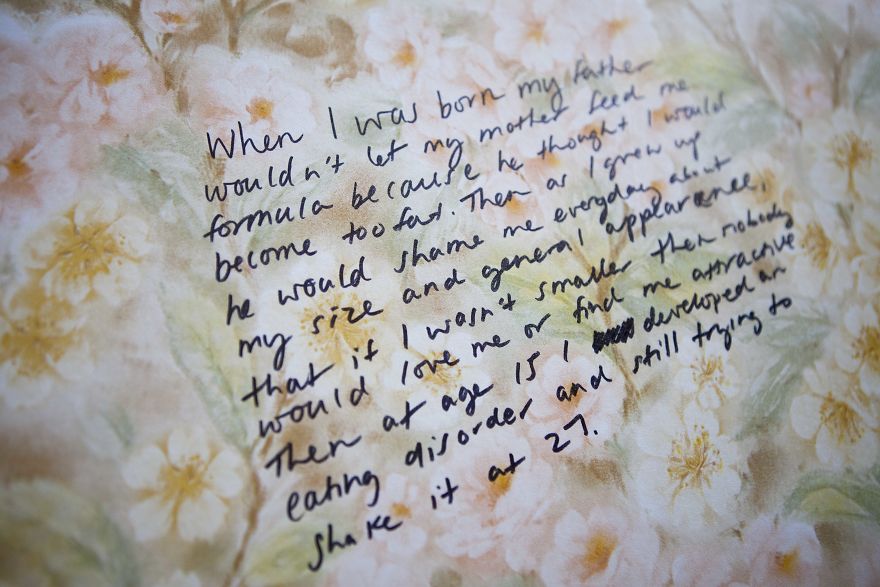 When I was born my father
wouldn't let my mother feed me
formula because he thought I would
become too fat. Then as I grew up
he would shame me everyday about
my size and general appearance,
that if I wasn't smaller then nobody
would love me or find me attractive
Then at age 15 I developed an
eating disorder and still trying to
shake it at 27.